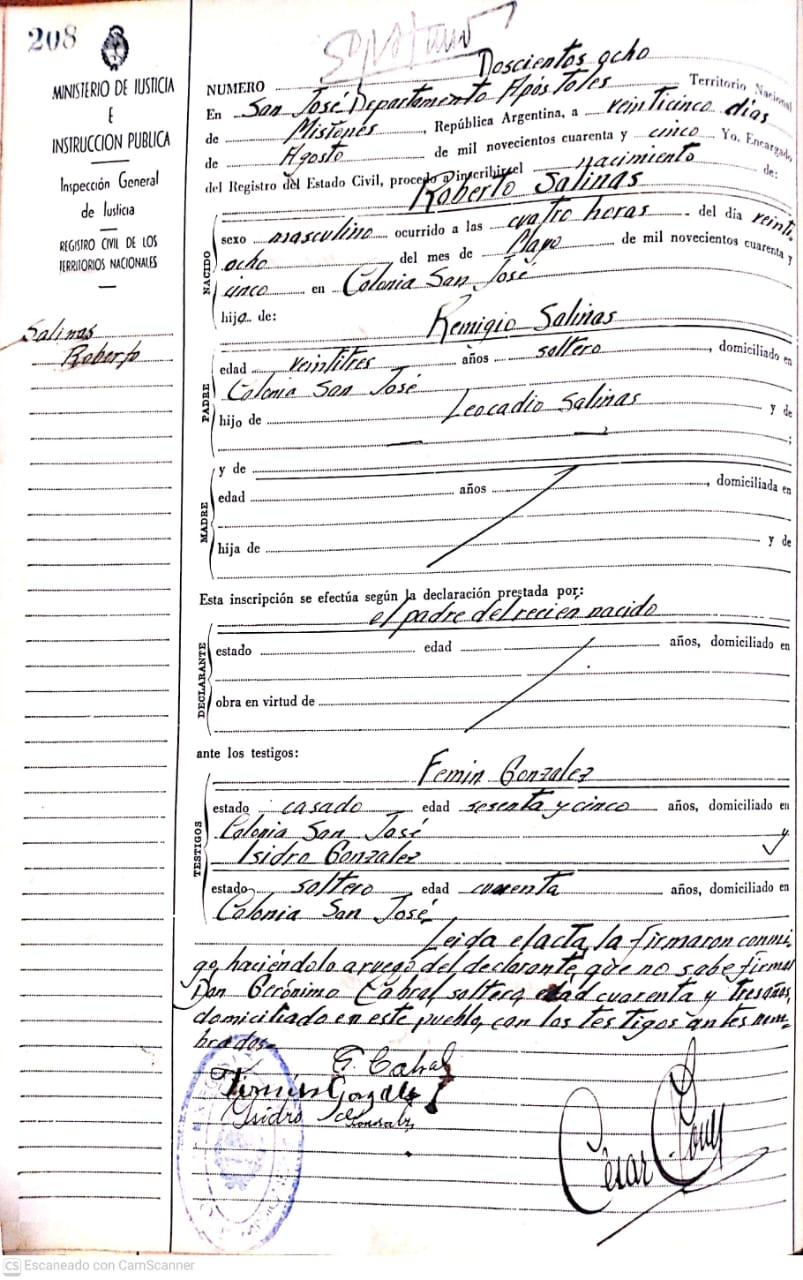 208
MINISTERIO DE JUSTICIA
E
INSTRUCCION PUBLICA
Inspección General
de Justicia
REGISTRO CIVIL DE LOS
TERRITORIOS NACIONALES
Salinas
Roberto
NUMERO Doscientos ocho
En San José Departamento Apóstoles Territorio Nacional
de Misiones, República Argentina, a veinticinco días
de Agosto de mil novecientos cuarenta y cinco Yo. Encargado
del Registro del Estado Civil, procedo a inscribir el nacimiento de:
Roberto Salinas
NACIDO
sexo masculino ocurrido a las cuatro horas del día veinti
ocho del mes de Mayo de mil novecientos cuarenta y
cinco en Colonia San José
hijo de:
Remigio Salinas
PADRE
edad veintitres años soltero, domiciliado en
Colonia San José
hijo de Leocadio Salinas y de
;
MADRE
y de
edad años, domiciliada en
hija de y de
Esta inscripción se efectúa según la declaración prestada por:
el padre del recien nacido
DECLARANTE
estado edad años, domiciliado en
obra en virtud de
ante los testigos:
TESTIGOS
Femin Gonzalez
estado casado edad sesenta y cinco años, domiciliado en
Colonia San José y
Isidro Gonzalez
estado soltero edad cuarenta años, domiciliado en
Colonia San José.
Leida el acta, la firmaron conmi-
go, haciéndolo a ruego del declarante, que no sabe firmar
Don Gerónimo Cabral, soltero, edad cuarenta y tres años,
domiciliado en este pueblo, con los testigos antes nom-
brados.-
G. Cabral
Fermin Gonzalez
Isidro Gonzalez
César
CS Escaneado con CamScanner